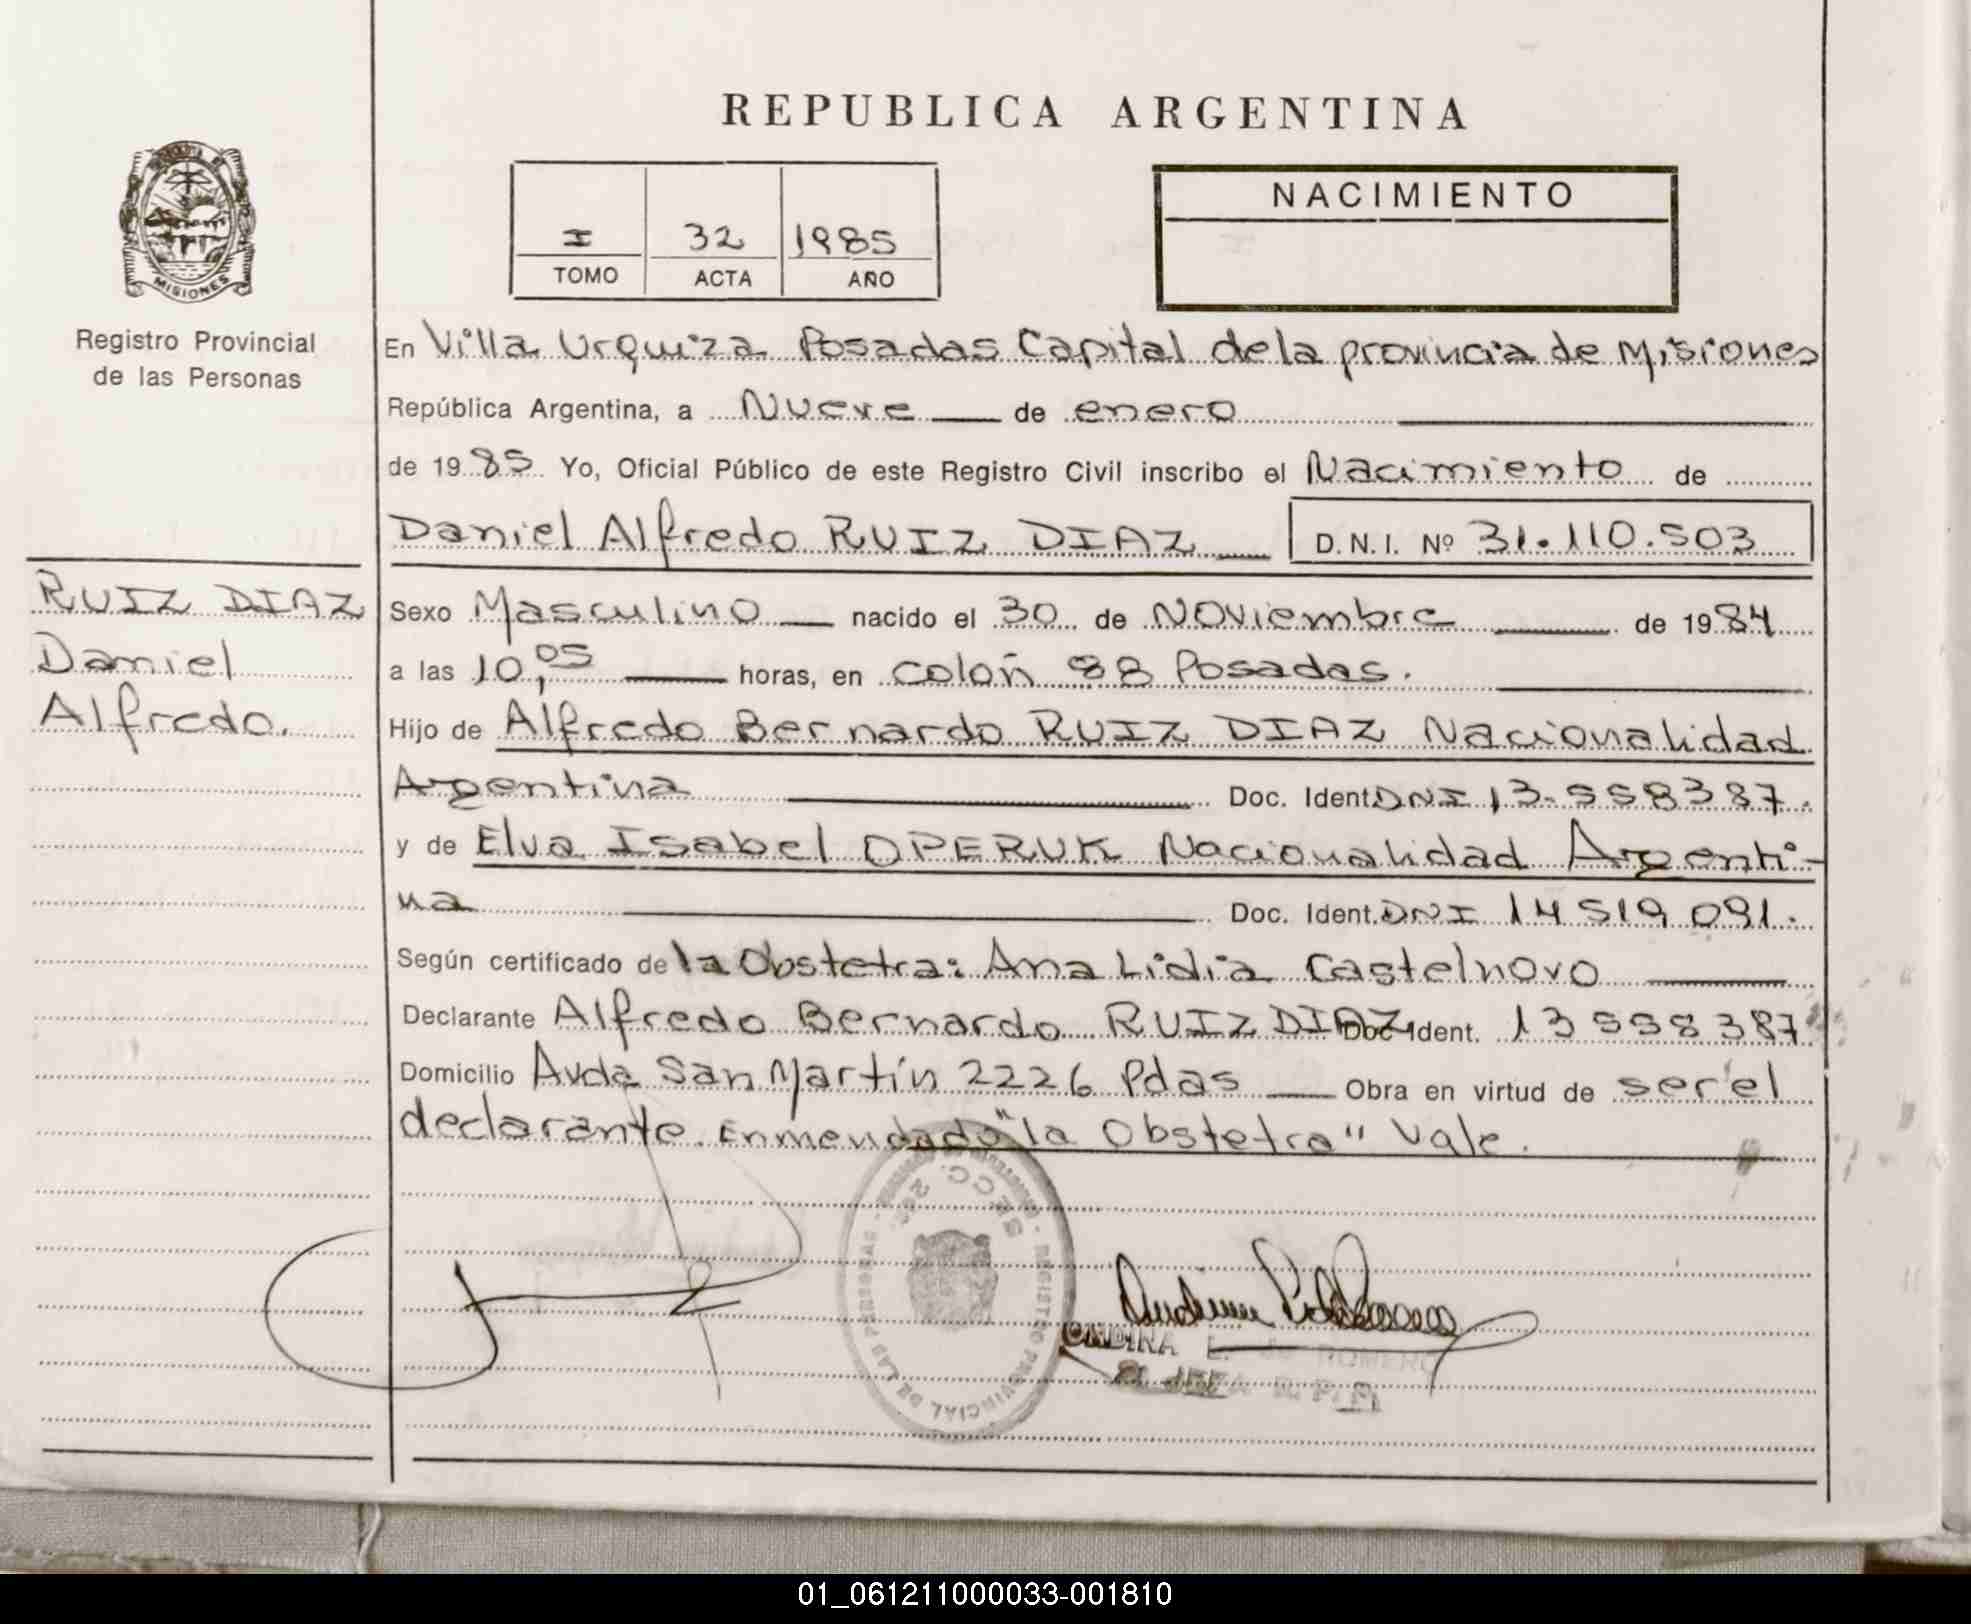 REPUBLICA ARGENTINA
MISIONES
Registro Provincial
de las Personas
I 32 1985
TOMO ACTA AÑO
NACIMIENTO
En Villa Urquiza Posadas Capital de la provincia de Misiones
República Argentina, a Nueve de enero
de 1985 Yo, Oficial Público de este Registro Civil inscribo el Nacimiento de
Daniel Alfredo RUIZ DIAZ D.N.I. Nº 31.110.503
RUIZ DIAZ
Daniel
Alfredo.
Sexo Masculino nacido el 30 de Noviembre de 1984
a las 10,05 horas, en colon 88 Posadas.
Hijo de Alfredo Bernardo RUIZ DIAZ Nacionalidad
Argentina Doc. Ident. DNI 13.558387.
y de Elva Isabel OPERUK Nacionalidad Argenti-
na Doc. Ident. DNI 14 519 091.
Según certificado de la Obstetra: Ana Lidia Castelnovo
Declarante Alfredo Bernardo RUIZ DIAZ Doc. Ident. 13 558 387
Domicilio Avda San Martín 2226 Pdas Obra en virtud de ser el
declarante. Enmendado "la Obstetra" Vale.
REGISTRO PROVINCIAL DE LAS PERSONAS
ONDINA L. de ROMERO
01_061211000033-001810